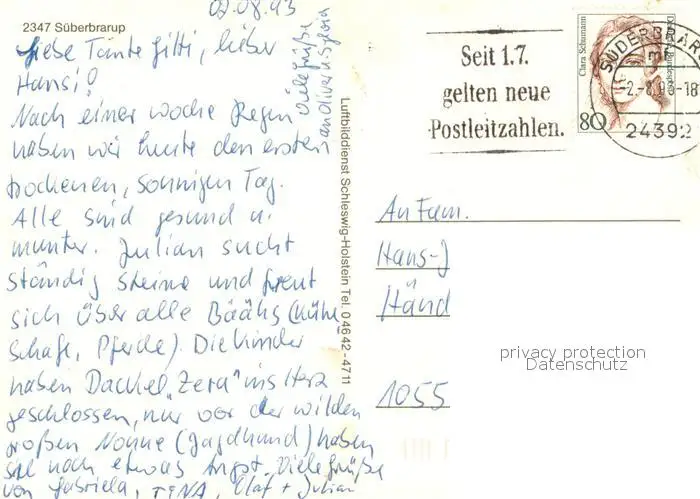 02.08.93
2347 Süberbrarup
Liebe Tante Gitti, lieber
Hansi!
Nach einer Woche Regen
haben wir heute den ersten
trockenen, sonnigen Tag.
Alle sind gesund u.
munter. Julian sucht
ständig Steine und freut
sich über alle Bäähs (Kühe
Schafe, Pferde). Die Kinder
haben Dackel „Zera“ ins Herz
geschlossen, nur vor der wilden
großen Nonne (Jagdhund) haben
sie noch etwas Angst. Viele Grüße
von Gabriela, TINA, Olaf + Julian
Viele Grüße
an Oliver u. Sylvia
Luftbilddienst Schleswig-Holstein Tel. 04642-4711
Seit 1.7.
gelten neue
Postleitzahlen.
Clara Schumann
80
SÜDERBRAR
-2.-8.93-18
24392
An Fam.
Hans-J
Händ
1055
privacy protection
Datenschutz